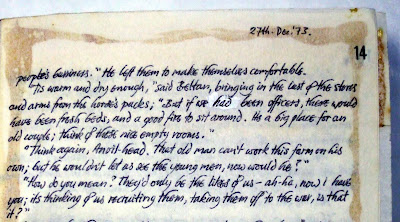 27th. Dec. '73.
14
people's business." He left them to make themselves comfortable.
"Tis warm and dry enough," said Beltan, bringing in the last of the stores
and arms from the horse's packs; "But if we had been officers, there would
have been fresh beds, and a good fire to sit around. Its a big place for an
old couple; think of these nice empty rooms."
"Think again, Anvil-head. That old man can't work this farm on his
own; but he wouldn't let us see the young men, now would he?"
"How do you mean? They'd only be the likes of us – ah-ha, now i have
you; its thinking of us recruiting them, taking them off to the war, is that
it?"